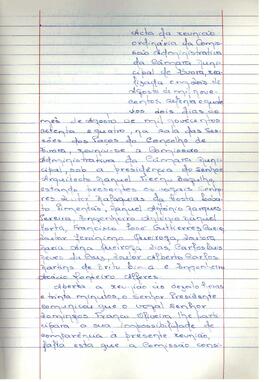 Acta da reunião
ordinária da Comis-
são Administrativa
da Câmara Muni-
cipal de Évora, rea-
lizada em dois de
Agosto de mil nove-
centos setenta e quatro
Aos dois dias do
mês de Agosto de mil novecentos
setenta e quatro, na sala das Ses-
sões dos Paços do Concelho de
Évora, reuniu-se a Comissão
Administrativa da Câmara Muni-
cipal, sob a presidência do Senhor
Arquitecto Manuel
estando presentes os vogais Senho-
res Doutor da Costa
Pimentel, Manuel António
Pereira, Engenheiro António Manuel
Francisco José
Doutor Jerónimo Doutora
Maria Ana Carlos
da Luz, Doutor Alberto Carlos
Martins de Brito e Engenheiro
Alferes
Aberta a reunião às
e trinta minutos, o Senhor Presidente
comunicou que o vogal Senhor
Domingos Franco Oliveira, lhe parti-
cipara a sua impossibilidade de
comparência à presente reunião,
falta esta que a Comissão consi-